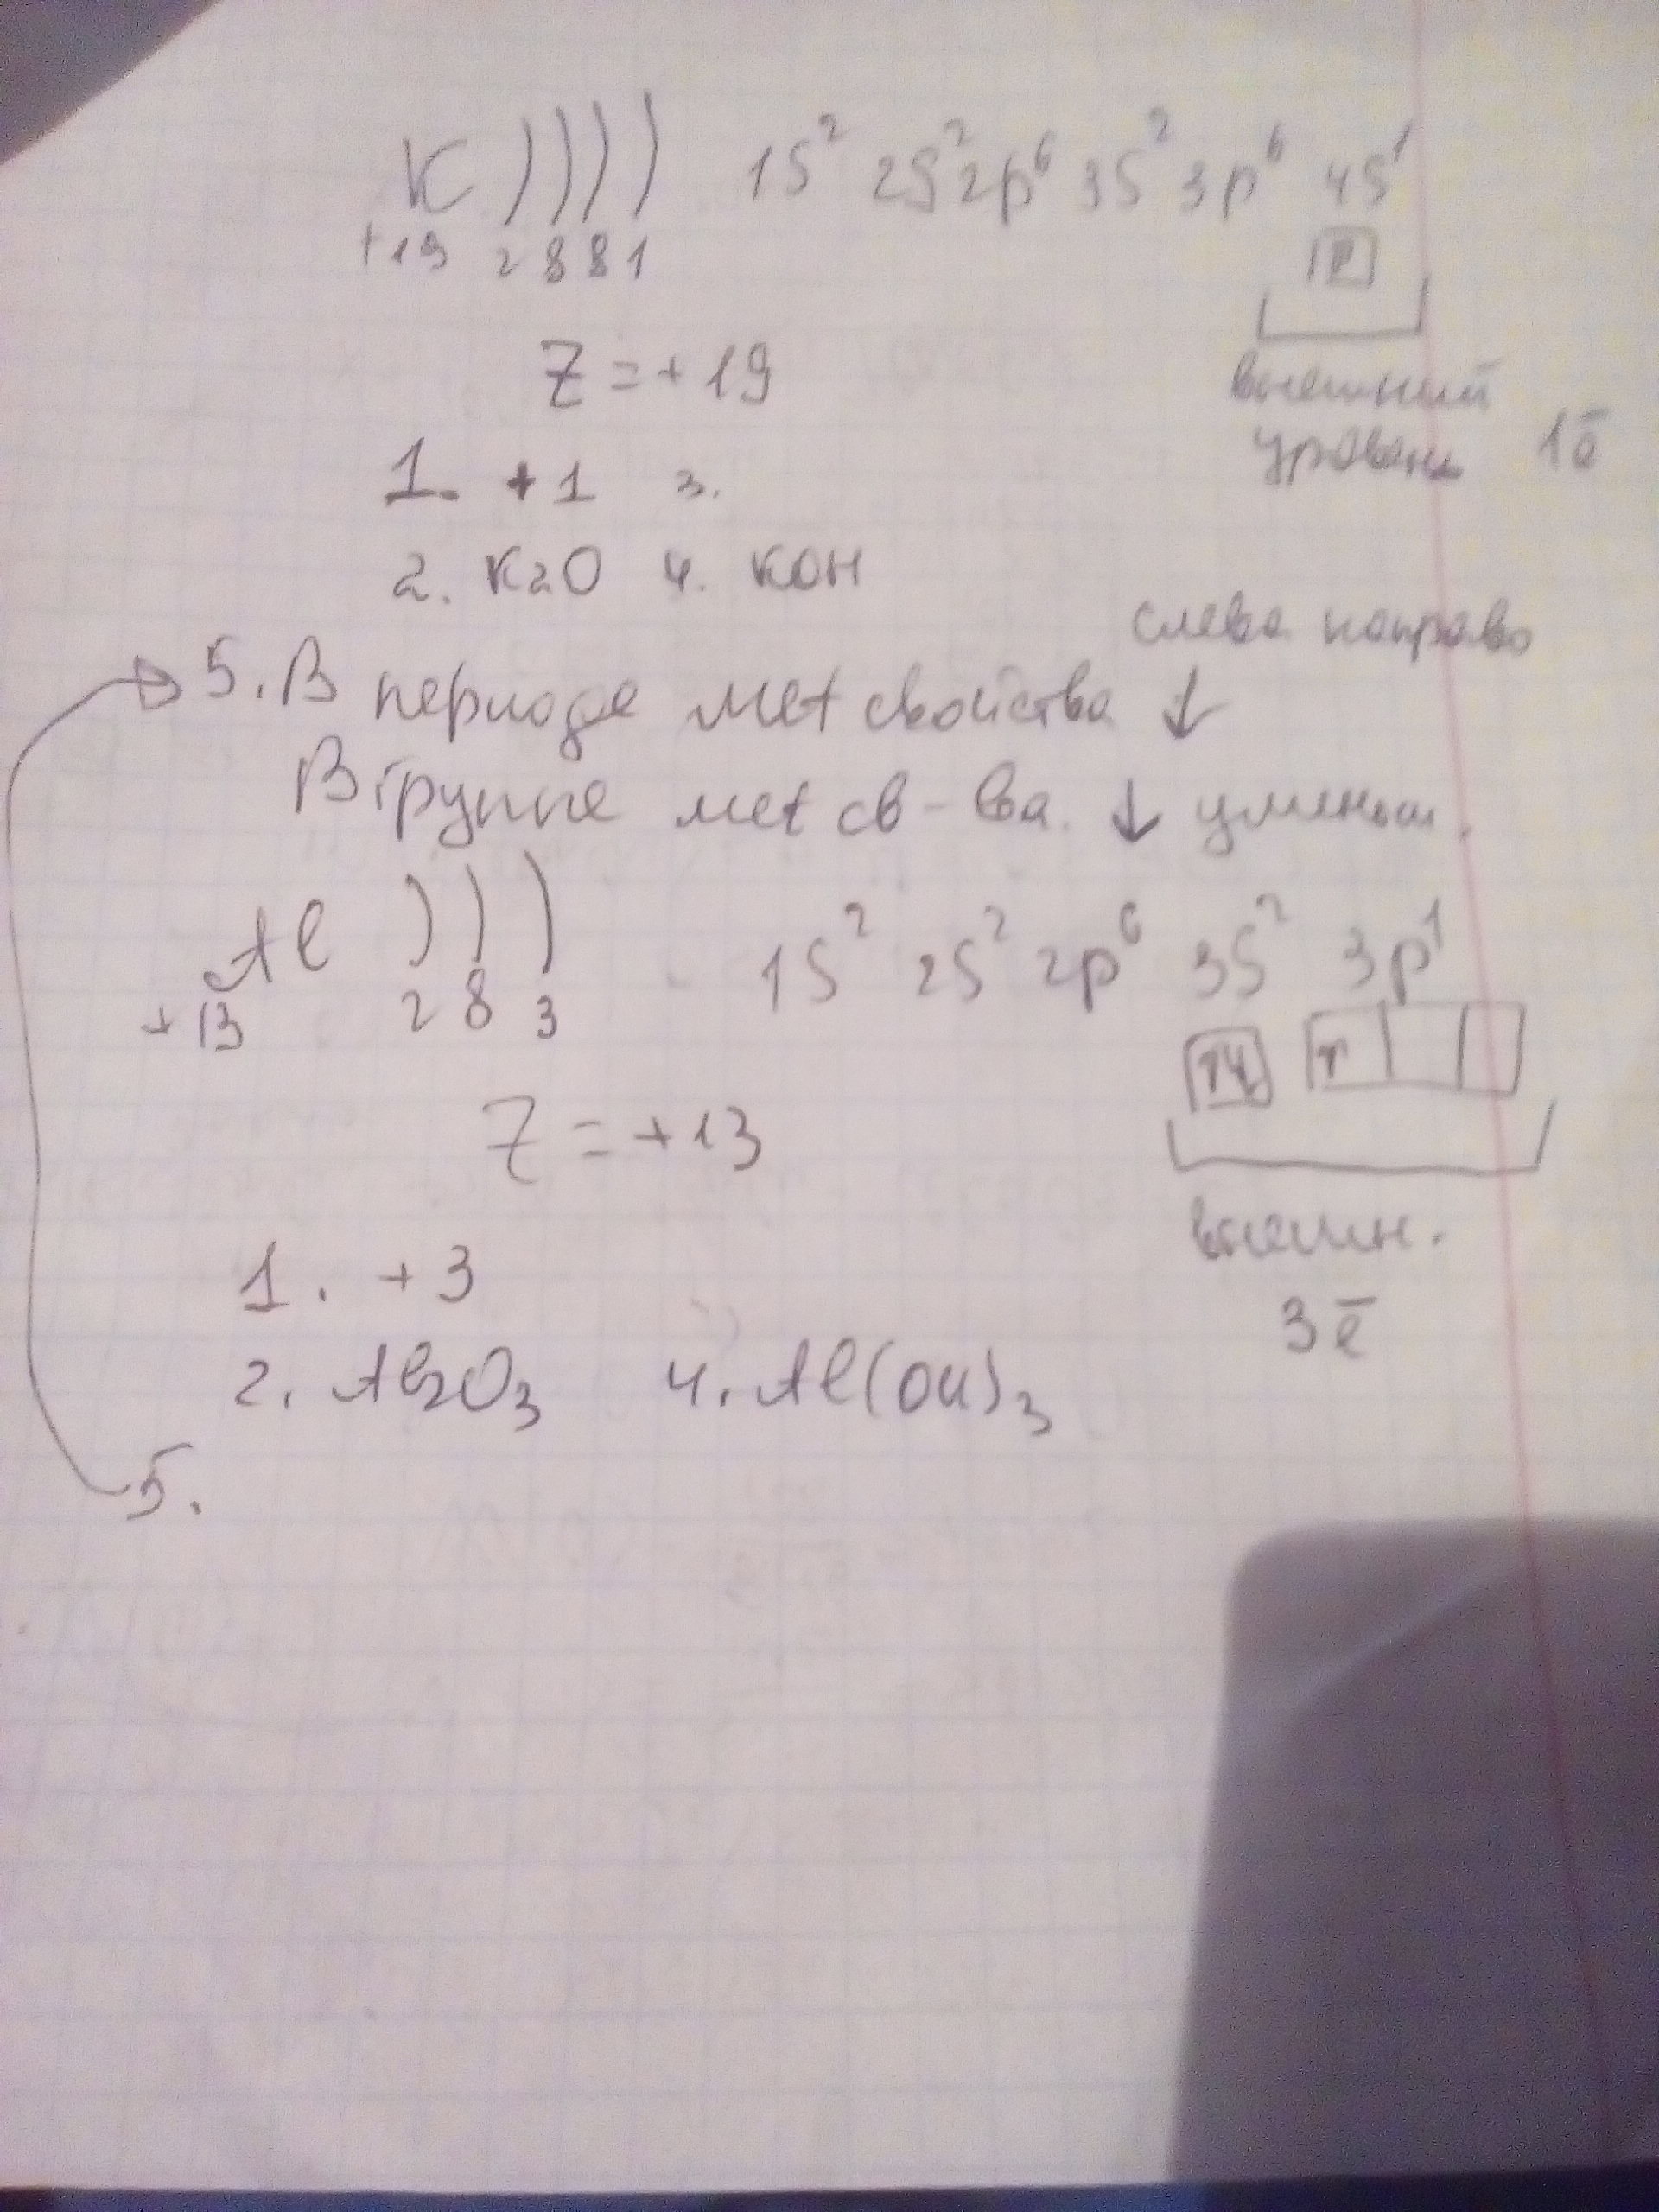 K ) ) ) ) 1S² 2S² 2p⁶ 3S² 3p⁶ 4S¹
+19 2 8 8 1
Z = + 19
внешний
уровень 1ē
1. +1 3.
2. K2O 4. KOH
слева направо
5. В периоде мet свойства ↓
В группе мet св-ва. ↓ уменьш.
Al ) ) ) 1S² 2S² 2p⁶ 3S² 3p¹
+13 2 8 3
↑↓ ↑
Z = +13
внешн.
3ē
1. +3
2. Al2O3 4. Al(OH)3
5.